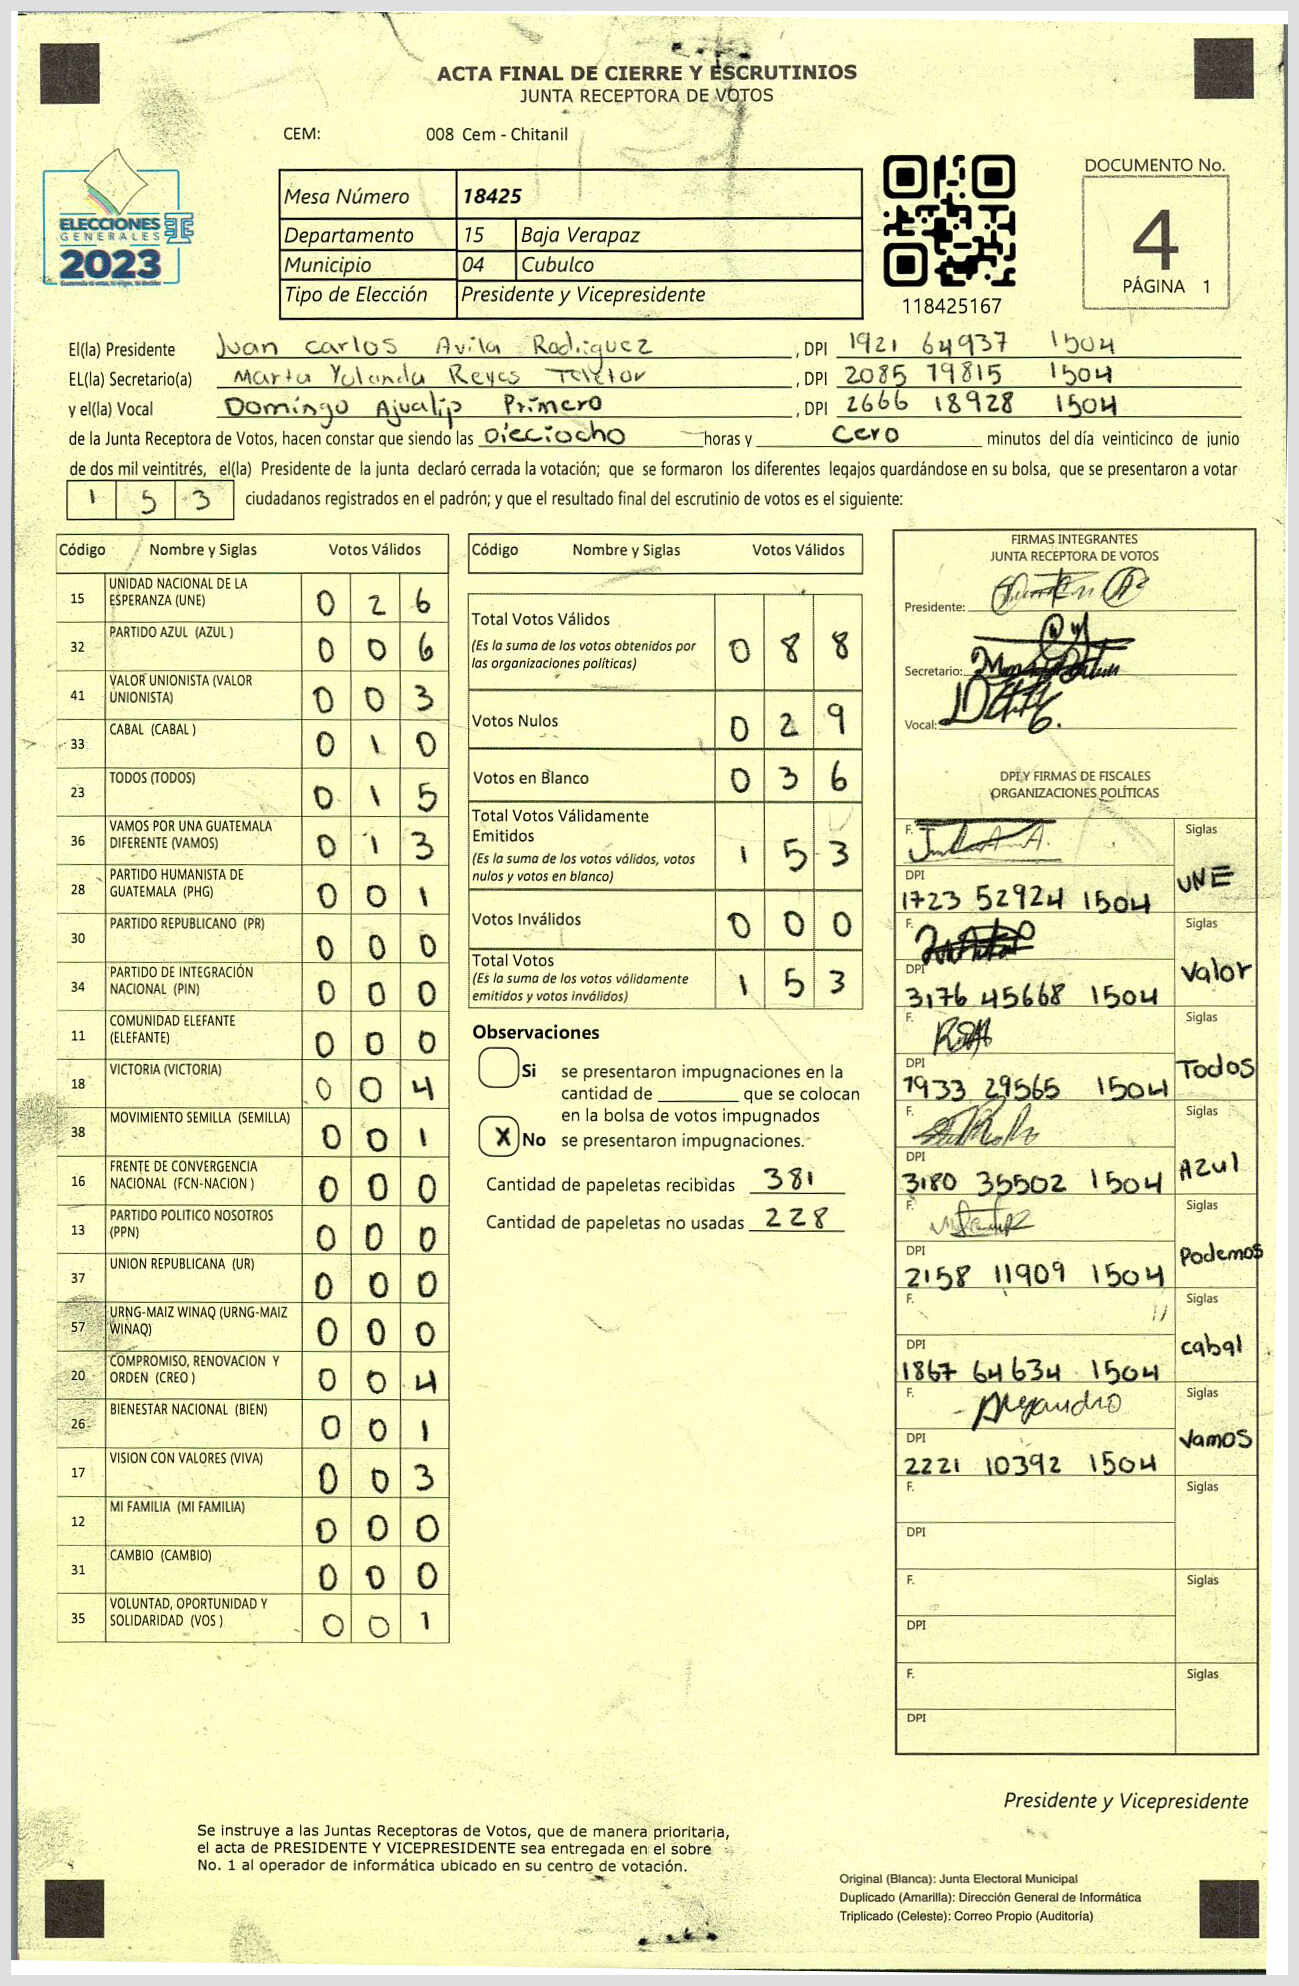 ACTA FINAL DE CIERRE Y ESCRUTINIOS
JUNTA RECEPTORA DE VOTOS
CEM: 008 Cem - Chitanil
ELECCIONES
GENERALES
2023
Mesa Número 18425
Departamento 15 Baja Verapaz
Municipio 04 Cubulco
Tipo de Elección Presidente y Vicepresidente
118425167
DOCUMENTO No.
4
PÁGINA 1
El(la) Presidente Juan Carlos Avila Rodriguez , DPI 1921 64937 1504
EL(la) Secretario(a) Marta Yolanda Reyes Teletor , DPI 2085 79815 1504
y el(la) Vocal Domingo Ajualip Primero , DPI 2666 18928 1504
de la Junta Receptora de Votos, hacen constar que siendo las Dieciocho horas y cero minutos del día veinticinco de junio
de dos mil veintitrés, el(la) Presidente de la junta declaró cerrada la votación; que se formaron los diferentes legajos quardándose en su bolsa, que se presentaron a votar
1 5 3 ciudadanos registrados en el padrón; y que el resultado final del escrutinio de votos es el siguiente:
Código Nombre y Siglas Votos Válidos
15 UNIDAD NACIONAL DE LA ESPERANZA (UNE) 0 2 6
32 PARTIDO AZUL (AZUL ) 0 0 6
41 VALOR UNIONISTA (VALOR UNIONISTA) 0 0 3
33 CABAL (CABAL ) 0 1 0
23 TODOS (TODOS) 0 1 5
36 VAMOS POR UNA GUATEMALA DIFERENTE (VAMOS) 0 1 3
28 PARTIDO HUMANISTA DE GUATEMALA (PHG) 0 0 1
30 PARTIDO REPUBLICANO (PR) 0 0 0
34 PARTIDO DE INTEGRACIÓN NACIONAL (PIN) 0 0 0
11 COMUNIDAD ELEFANTE (ELEFANTE) 0 0 0
18 VICTORIA (VICTORIA) 0 0 4
38 MOVIMIENTO SEMILLA (SEMILLA) 0 0 1
16 FRENTE DE CONVERGENCIA NACIONAL (FCN-NACION ) 0 0 0
13 PARTIDO POLITICO NOSOTROS (PPN) 0 0 0
37 UNION REPUBLICANA (UR) 0 0 0
57 URNG-MAIZ WINAQ (URNG-MAIZ WINAQ) 0 0 0
20 COMPROMISO, RENOVACION Y ORDEN (CREO ) 0 0 4
26 BIENESTAR NACIONAL (BIEN) 0 0 1
17 VISION CON VALORES (VIVA) 0 0 3
12 MI FAMILIA (MI FAMILIA) 0 0 0
31 CAMBIO (CAMBIO) 0 0 0
35 VOLUNTAD, OPORTUNIDAD Y SOLIDARIDAD (VOS ) 0 0 1
Código Nombre y Siglas Votos Válidos
Total Votos Válidos 0 8 8
(Es la suma de los votos obtenidos por
las organizaciones políticas)
Votos Nulos 0 2 9
Votos en Blanco 0 3 6
Total Votos Válidamente
Emitidos 1 5 3
(Es la suma de los votos válidos, votos
nulos y votos en blanco)
Votos Inválidos 0 0 0
Total Votos 1 5 3
(Es la suma de los votos válidamente
emitidos y votos inválidos)
Observaciones
Si se presentaron impugnaciones en la
cantidad de ________ que se colocan
en la bolsa de votos impugnados
X No se presentaron impugnaciones.
Cantidad de papeletas recibidas 381
Cantidad de papeletas no usadas 228
FIRMAS INTEGRANTES
JUNTA RECEPTORA DE VOTOS
Presidente:
Secretario:
Vocal:
DPI Y FIRMAS DE FISCALES
ORGANIZACIONES POLÍTICAS
F. Siglas
DPI UNE
1723 52924 1504
F. Siglas
DPI Valor
3176 45668 1504
F. Siglas
DPI Todos
1933 29565 1504
F. Siglas
DPI AZul
3180 35502 1504
F. Siglas
DPI Podemos
2158 11909 1504
F. Siglas
DPI cabal
1867 64634 1504
F. Alejandro Siglas
DPI Vamos
2221 10392 1504
F. Siglas
DPI
F. Siglas
DPI
F. Siglas
DPI
Presidente y Vicepresidente
Se instruye a las Juntas Receptoras de Votos, que de manera prioritaria,
el acta de PRESIDENTE Y VICEPRESIDENTE sea entregada en el sobre
No. 1 al operador de informática ubicado en su centro de votación.
Original (Blanca): Junta Electoral Municipal
Duplicado (Amarilla): Dirección General de Informática
Triplicado (Celeste): Correo Propio (Auditoría)